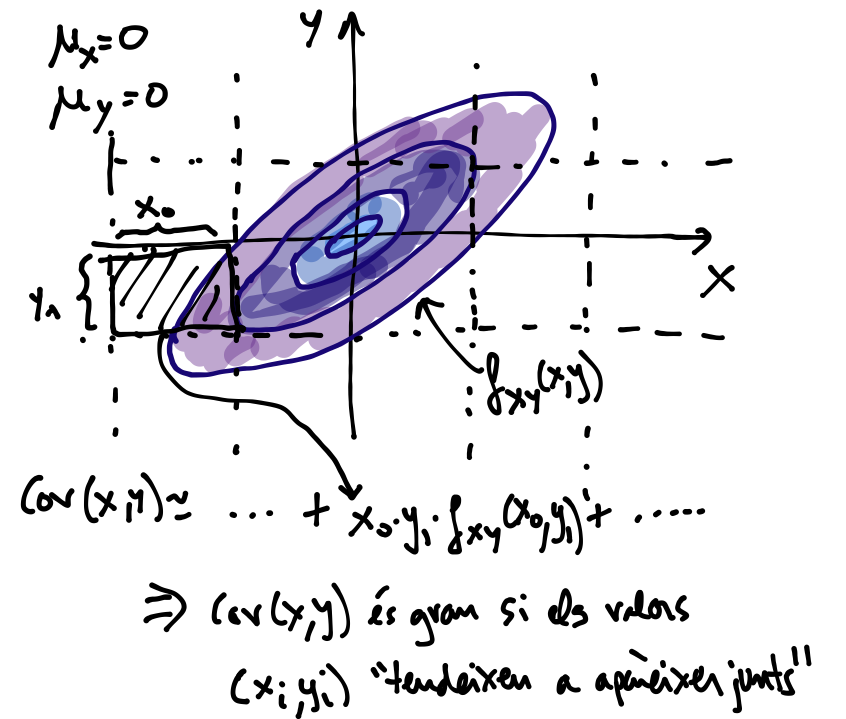 μₓ=0
μ_y=0
y
x₀
y₁
x
f_xy(x,y)
Cov(x,y) ≃ .... + x₀·y₁·f_xy(x₀,y₁) + .....
⇒ Cov(x,y) és gran si els valors
(xᵢ,yᵢ) "tendeixen a aparèixer junts"